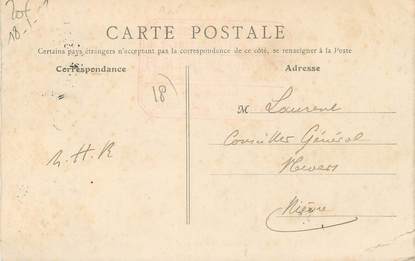 CARTE POSTALE
Certains pays étrangers n'acceptant pas la correspondance de ce côté, se renseigner à la Poste
Correspondance
Adresse
18
M Laurent
Conseiller Général
Nevers
Nièvre